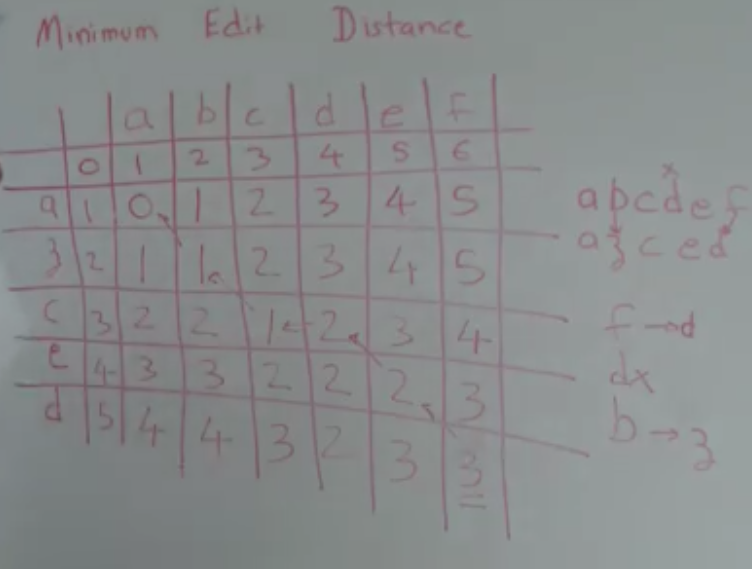 Minimum Edit Distance
a b c d e f
0 1 2 3 4 5 6
a 1 0 1 2 3 4 5
z 2 1 1 2 3 4 5
c 3 2 2 1 2 3 4
e 4 3 3 2 2 2 3
d 5 4 4 3 2 3 3
abcdef
azced
f→d
dx
b→z